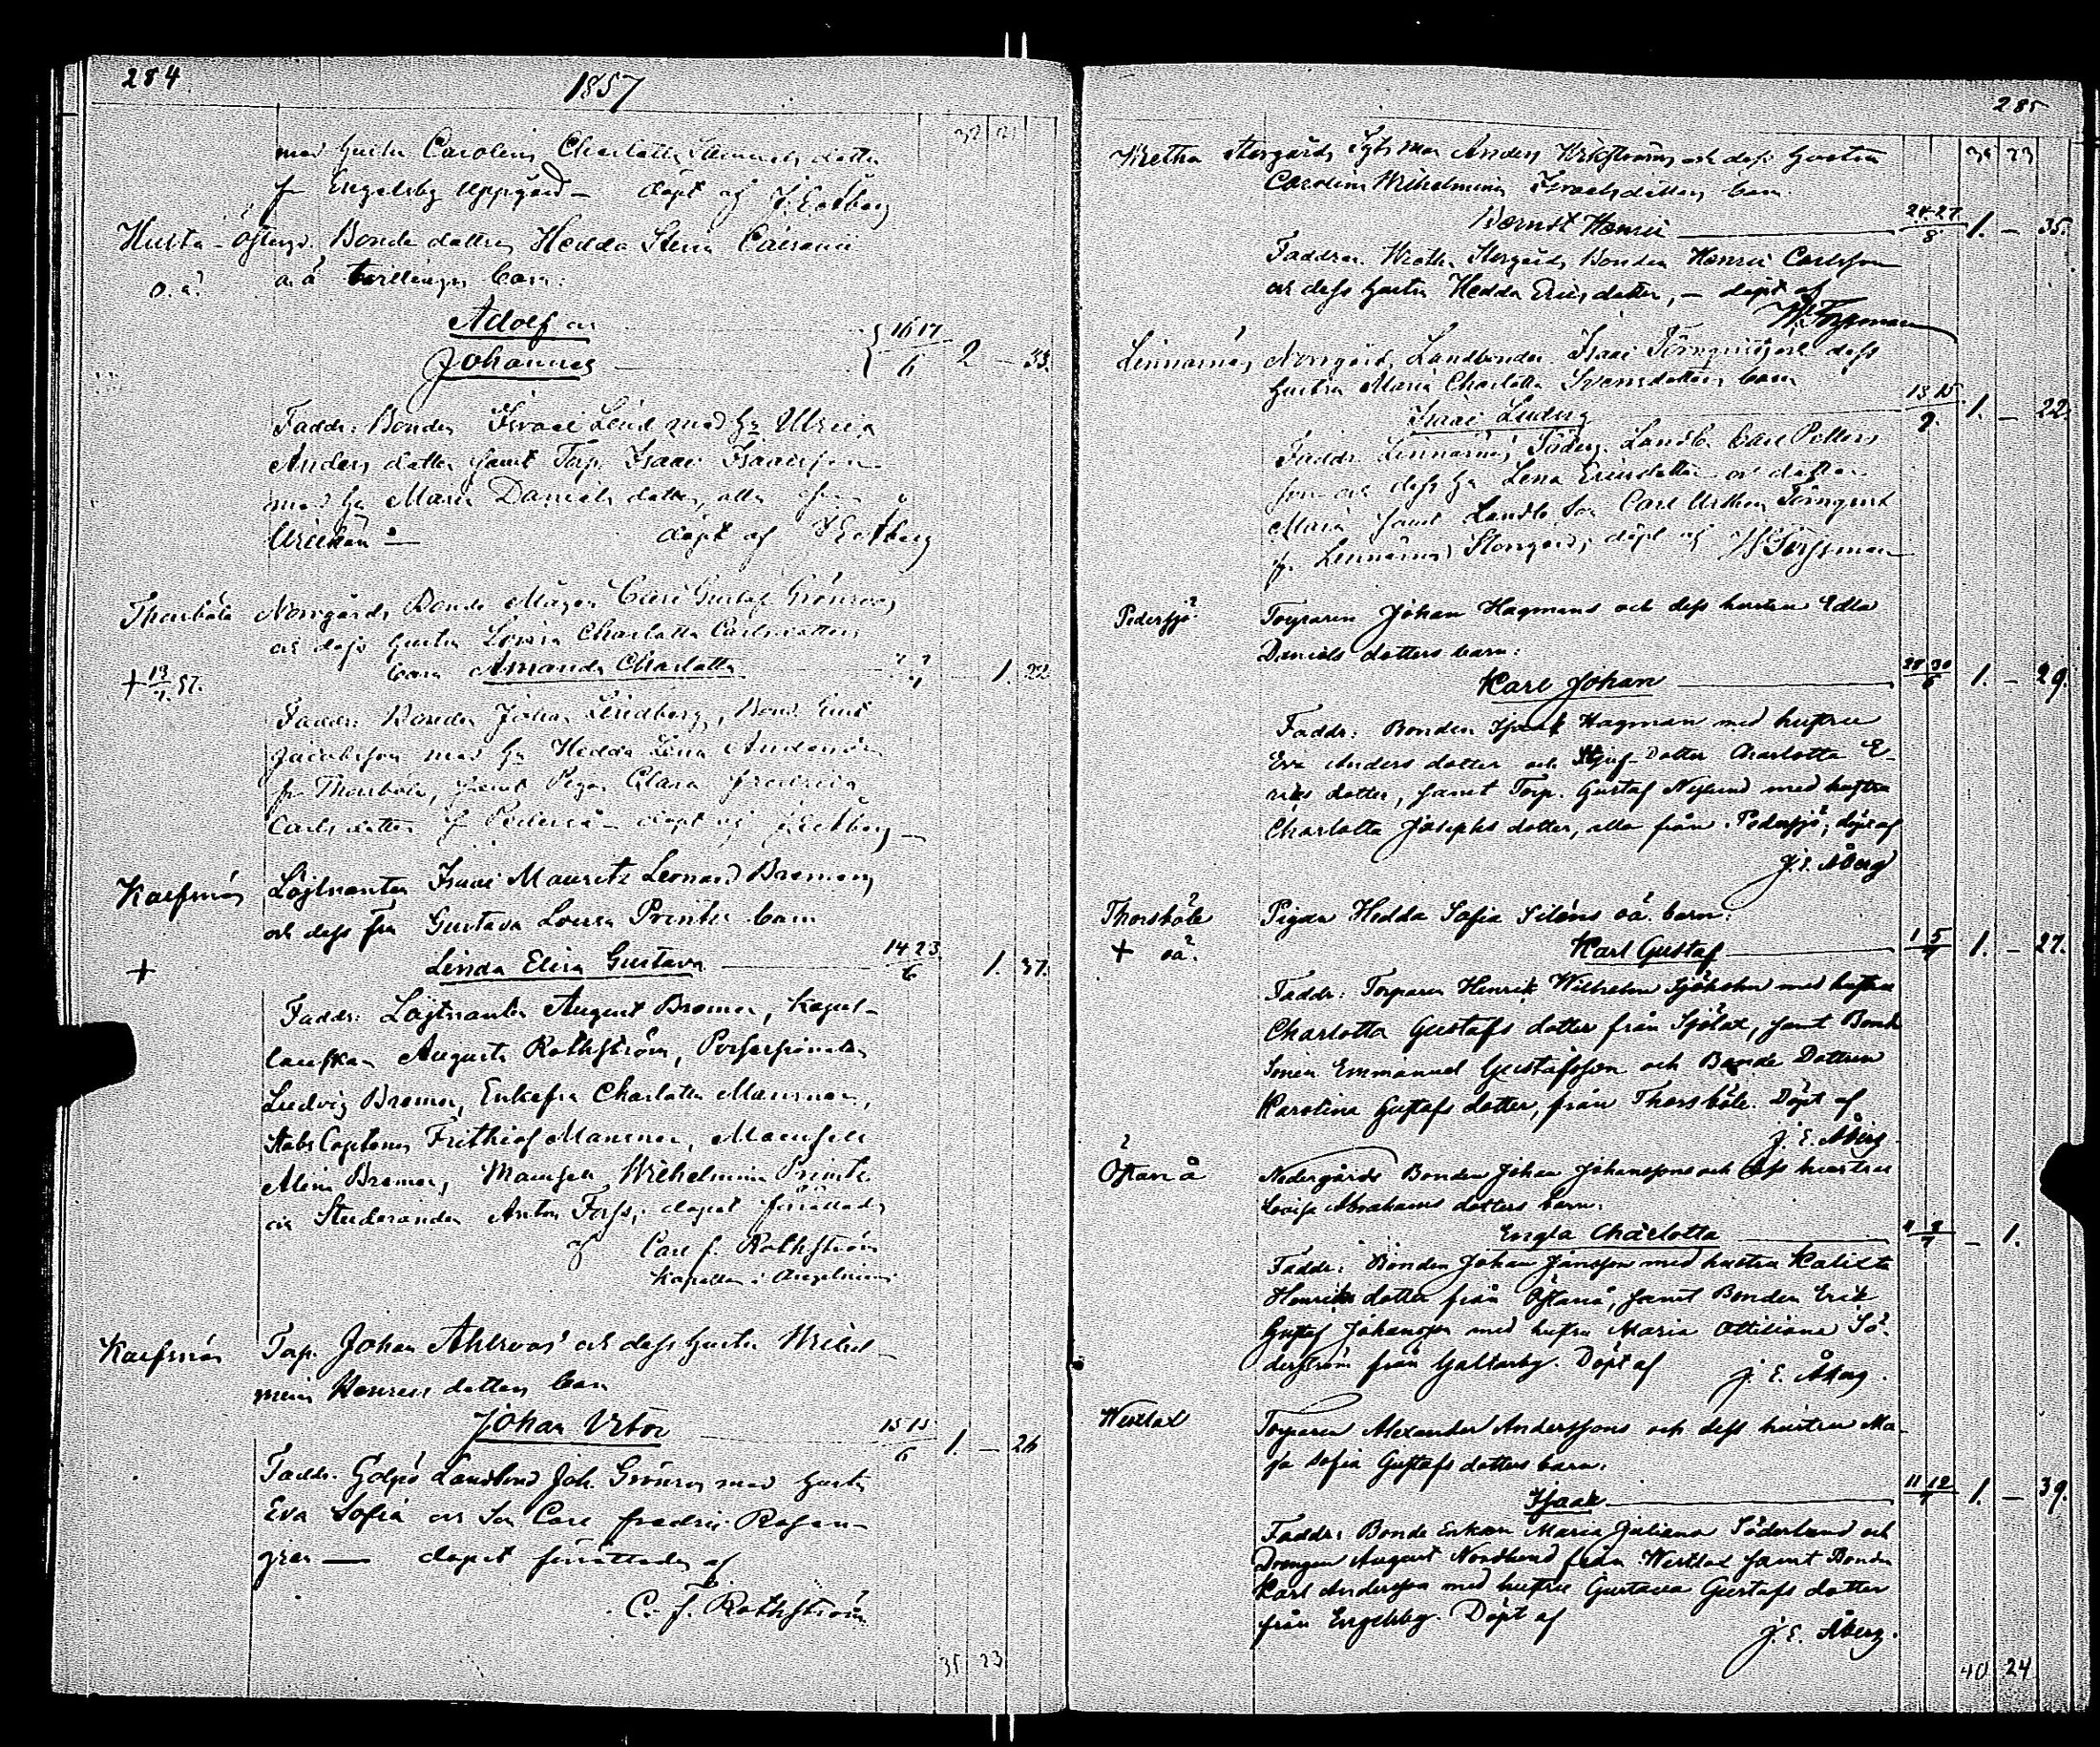 284 1857
32 21
med hustru Carolina Charlotta Samuels dotter
fr Engelsby Uppgård – döpt af J. Eckberg
Hulta - Östergd. Bonde dottren Hedda Stina
o.ä. o.ä tvillingar barn:
Adolf och 16 17
Johannes 6 2 – 33.
Faddr: Bonden Israel Lind med hu Ulrica
Anders dotter samt Torp. Isaac Isaacsson
med hu Maria Daniels dotter, alla
döpt af J Eckberg
Thorsböle Norrgårds Bonde Carl Gustaf Grönroos
och dess hustru Lovisa Charlotta Carlsdotters
barn Amanda Charlotta 1. 22
+ 57.
Faddr: Bonden Johan Lindberg, Bond.
Jacobsson med hu Hedda Lena
fr Thorsböle, samt Pigan Clara Fredrica
Carls dotter fr döpt af J Eckberg
Kaefsnäs Löjtnanten Isaac Mauritz Leonard Bremers
och dess fru Gustava Lovisa Printz barn
+ Linda Elisa Gustava 14 23 / 6 1. 37.
Faddr: Löjtnanten August Bremer, Kapel-
lanskan Augusta Rothström, Possessionaten
Ludvig Bremer, Enkefru Charlotta
Stabs Capitenen Frithiof Mamsell
Alina Bremer, Mamsell Wilhelmina Printz
och Studeranden Anton Forss; dopet förättades
af Carl F. Rothström
Kapellan i
Kaefsnäs Torp. Johan Ahlroos' och dess hustru Wilhel-
mina Henrics dotters barn
Johan Victor 15 / 6 1. – 26
Faddr. Landbond Joh. Grönroos med hustru
Eva Sofia och Son Carl Fredric Rosen-
gren — dopet förättades af
C. F. Rothström
35 23
285
35 23
Wretha Storgårds Anders och dess hustru
Carolina Wilhelmina Israelsdotters barn.
Berndt Henric 24 27 / 8 1. – 35.
Faddrar. Wretha Storgårds Bonden Henric Carlsson
och dess hustru Hedda Ericsdotter, – döpt af
W. Forssman
Linnarnäs Norrgårds Landbonden Isaac Törnqvists och dess
hustru Maria Charlotta Svensdotters barn
Isaac Ludvig 13 15 1. – 22.
Faddr. Linnarnäs Söderg. Landb. Carl Petters
son och dess hu Lena Ericsdotter och dottren
Maria samt Landb. Son Carl Törnqvist
fr. Linnarnäs Storgård; döpt af W Forssman
Pedersjö Torparen Johan Hagmans och dess hustru Edla
Daniels dotters barn:
Karl Johan 28 30 / 6 1. – 29.
Faddr: Bonden Isaak Hagman med hustru
Eva Anders dotter och Styf-Dotter Charlotta E-
riks dotter, samt Torp. Gustaf Nylund med hustru
Charlotta Josephs dotter, alla från Pedersjö; döpt af
J. E. Åberg
Thorsböle Pigan Hedda Sofia Siléns oä. barn:
+ oä. Karl Gustaf 1 5 / 7 1. – 27.
Faddr: Torparen Henrik Wilhelm Sjöholm med hustru
Charlotta Gustafs dotter från Sjölax, samt Bonde
Sonen Emmanuel Gustafsson och Bonde Dottren
Karolina Gustafs dotter, från Thorsböle. Döpt af
J. E. Åberg
Östanå Nedergårds Bonden Johan Johanssons och dess hustrus
Lovisa Abrahams dotters barn:
Engla Charlotta – 1.
Faddr: Bonden Johan Jansson med hustru Kalixta
Henriks dotter från Östanå, samt Bonden Erik
Gustaf Johansson med hustru Maria Ottiliana Sö-
derström från Galtarby. Döpt af J. E. Åberg.
Westlax Torparen Alexander Anderssons och dess hustrus Ma-
ja Sofia Gustafs dotters barn:
Isaak 11 12 / 7 1. – 39.
Faddr: Bonde Enkan Maria Juliana Söderlund och
Drengen August Nordlund från Westlax samt Bonden
Karl Andersson med hustru Gustava Gustafs dotter
från Engelsby. Döpt af
J. E. Åberg.
40 24